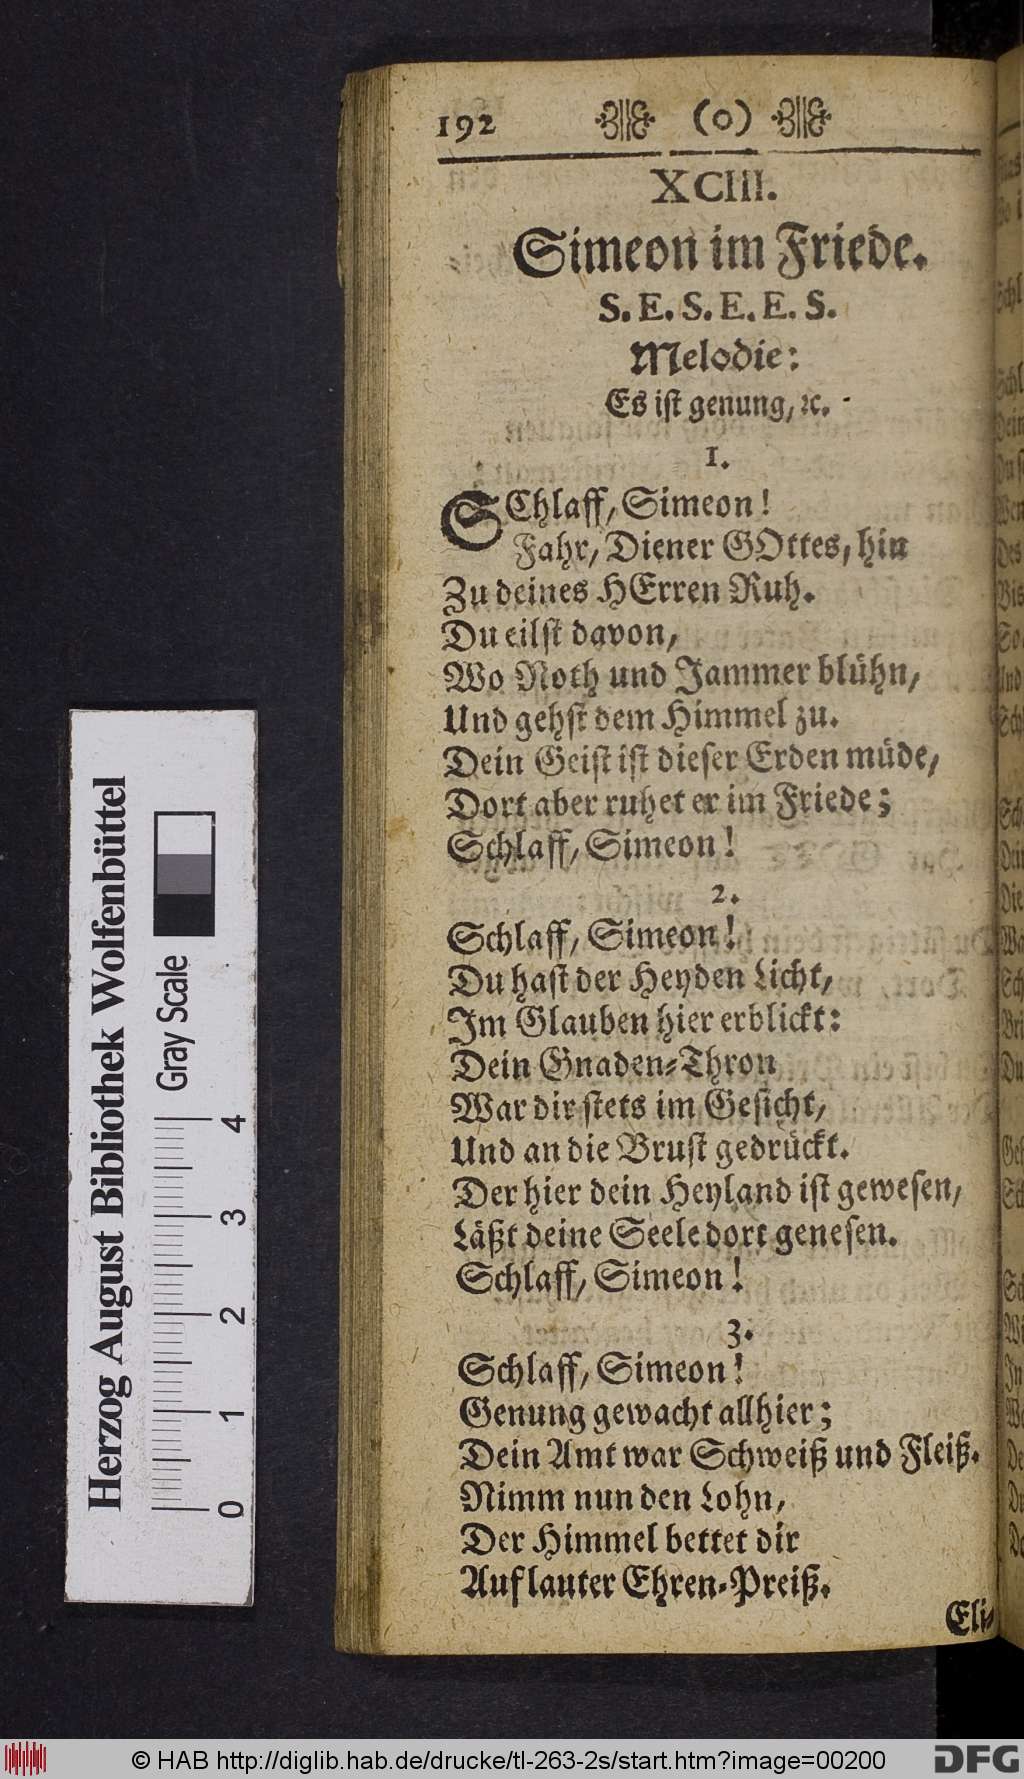 192 (o)
XCIII.
Simeon im Friede.
S. E. S. E. E. S.
Melodie:
Es ist genung, ꝛc.
1.
SChlaff, Simeon!
Fahr, Diener GOttes, hin
Zu deines HErren Ruh.
Du eilst davon,
Wo Noth und Jammer blühn,
Und gehst dem Himmel zu.
Dein Geist ist dieser Erden müde,
Dort aber ruhet er im Friede;
Schlaff, Simeon!
2.
Schlaff, Simeon!
Du hast der Heyden Licht,
Im Glauben hier erblickt:
Dein Gnaden-Thron
War dir stets im Gesicht,
Und an die Brust gedrückt.
Der hier dein Heyland ist gewesen,
Läßt deine Seele dort genesen.
Schlaff, Simeon!
3.
Schlaff, Simeon!
Genung gewacht allhier;
Dein Amt war Schweiß und Fleiß.
Nimm nun den Lohn,
Der Himmel bettet dir
Auf lauter Ehren-Preiß.
Eli-
Herzog August Bibliothek Wolfenbüttel
Gray Scale
0 1 2 3 4
© HAB http://diglib.hab.de/drucke/tl-263-2s/start.htm?image=00200
DFG